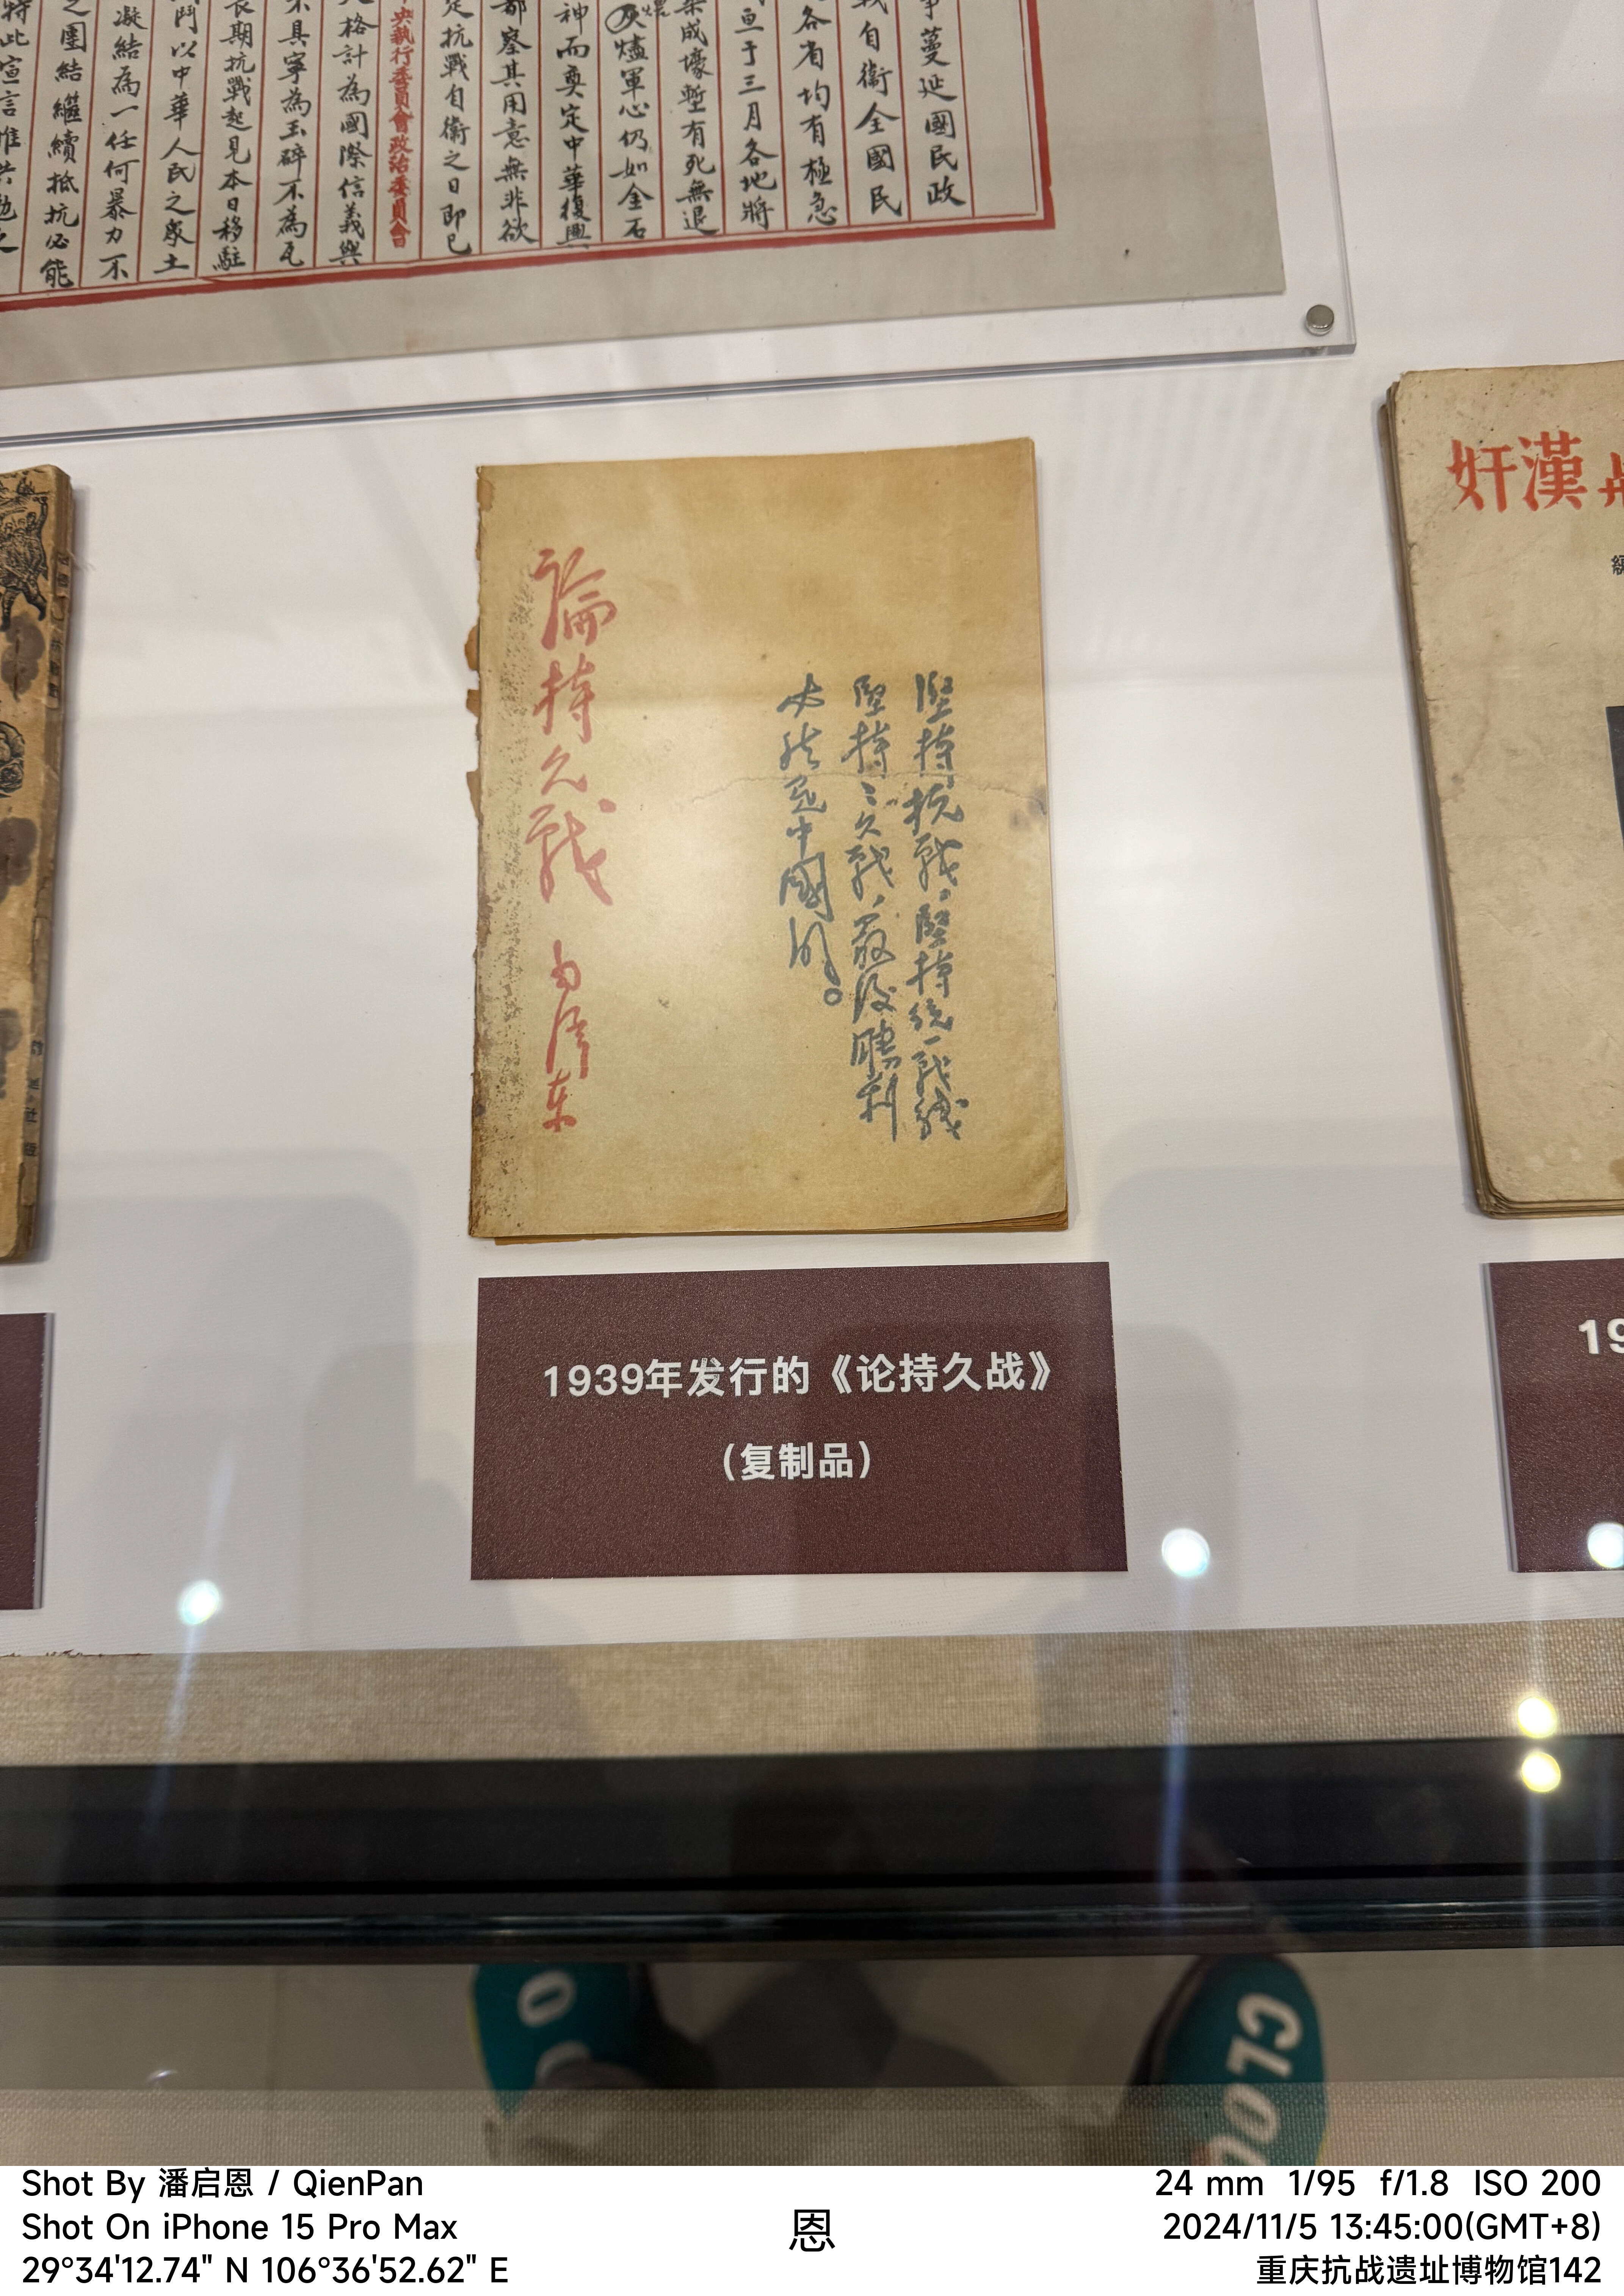 爭蔓延國民政
戰自衛全國民
各省均有極急
魚于三月各地將
築成壕塹有死無退
灰燼軍心仍如金石
神而奠定中華復興
都察其用意無非欲
定抗戰自衛之日即已
央執行委員會政治委員會
人格計為國際信義與
不具寧為玉碎不為瓦
長期抗戰起見本日移駐
鬥以中華人民之眾土
凝結為一任何暴力不
之團結繼續抵抗必能
特此宣言惟共勉之
奸漢
論持久戰 毛澤东
堅持抗戰,堅持統一戰綫
堅持持久戰,最后勝利
必然是中國的。
1939年发行的《论持久战》
(复制品)
19
CLO
Shot By 潘启恩 / QienPan
Shot On iPhone 15 Pro Max
29°34'12.74" N 106°36'52.62" E
恩
24 mm 1/95 f/1.8 ISO 200
2024/11/5 13:45:00(GMT+8)
重庆抗战遗址博物馆142